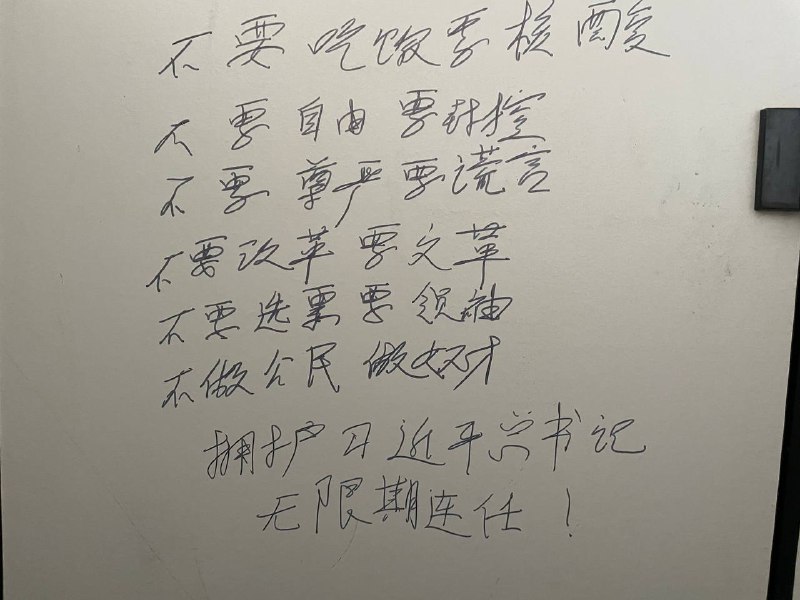 不要吃饭要核酸
不要自由要封控
不要尊严要谎言
不要改革要文革
不要选票要领袖
不做公民做奴才
拥护习近平总书记
无限期连任！